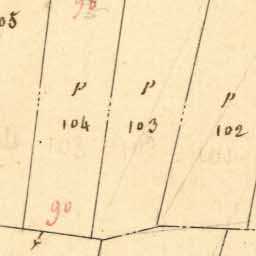 90
05
p p p
104 103 102
90